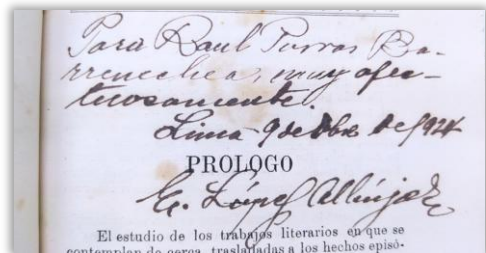 Para Raul Porras Ba-
rrenechea, muy afec-
tuosamente.
Lima 9 de Dbre de 1924
PROLOGO
E. López Albújar
El estudio de los trabajos literarios en que se
contemplan de cerca, trasladadas a los hechos episó-